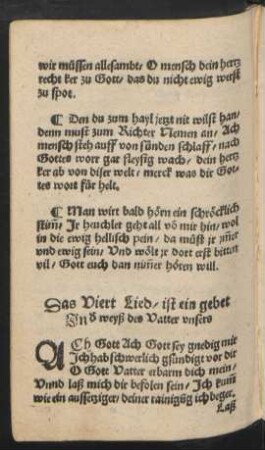 wir müssen allesambt/ O mensch dein hertz
recht ker zu Gott/ das du nicht ewig werst
zu spot.
¶ Den du zum hayl jetzt nit wilst han/
denn must zum Richter Nemen an/ Ach
mensch steh auff von sünden schlaff/ nach
Gottes wort gar fleysig wach/ dein hertz
ker ab von diser welt/ merck was dir Got-
tes wort für helt.
¶ Man wirt bald hörn ein schröcklich
stim̃/ Jr heuchlet geht all vō mir hin/ wol
in die ewig hellisch pein/ da müst jr ym̃er
vnd ewig sein/ Vnd wölt jr dort erst bitten
vil/ Gott euch dan nim̃er hören will.
Das Viert Lied/ ist ein gebet
Jn d̄ weyß des Vatter vnsers
ACh Gott Ach Gott sey gnedig mir
Jch hab schwerlich gsündigt vor dir
O Gott Vatter erbarm dich mein/
Vnnd laß mich dir befolen sein/ Jch kum̃
wie ein ausseziger/ deiner rainigūg ich beger.
Laß